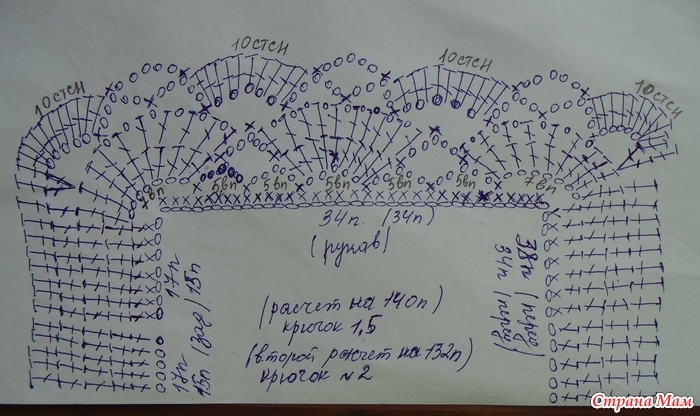 10 СТСН
10 СТСН
10 СТСН
10 СТСН
7вп 5вп 5вп 5вп 5вп 5вп 7вп
34п. (34п)
(рукав)
17п
15п (зад)
17п
15п
38п (перед)
34п (перед)
(расчет на 140п)
крючок 1,5
(второй расчет на 132п)
крючок №2
Страна Мам